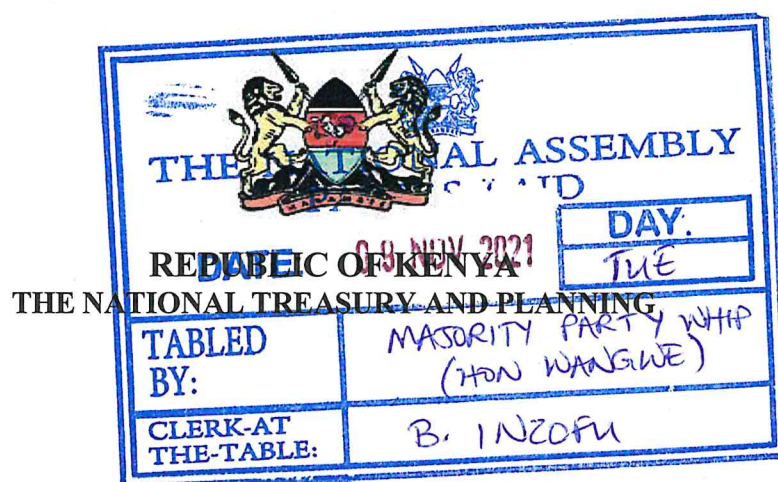 THE NATIONAL ASSEMBLY
DATE: 09 NOV 2021
DAY.
TUE
REPUBLIC OF KENYA
THE NATIONAL TREASURY AND PLANNING
TABLED BY:
MAJORITY PARTY WHIP
(HON WANGWE)
CLERK-AT THE-TABLE:
B. INZOFU